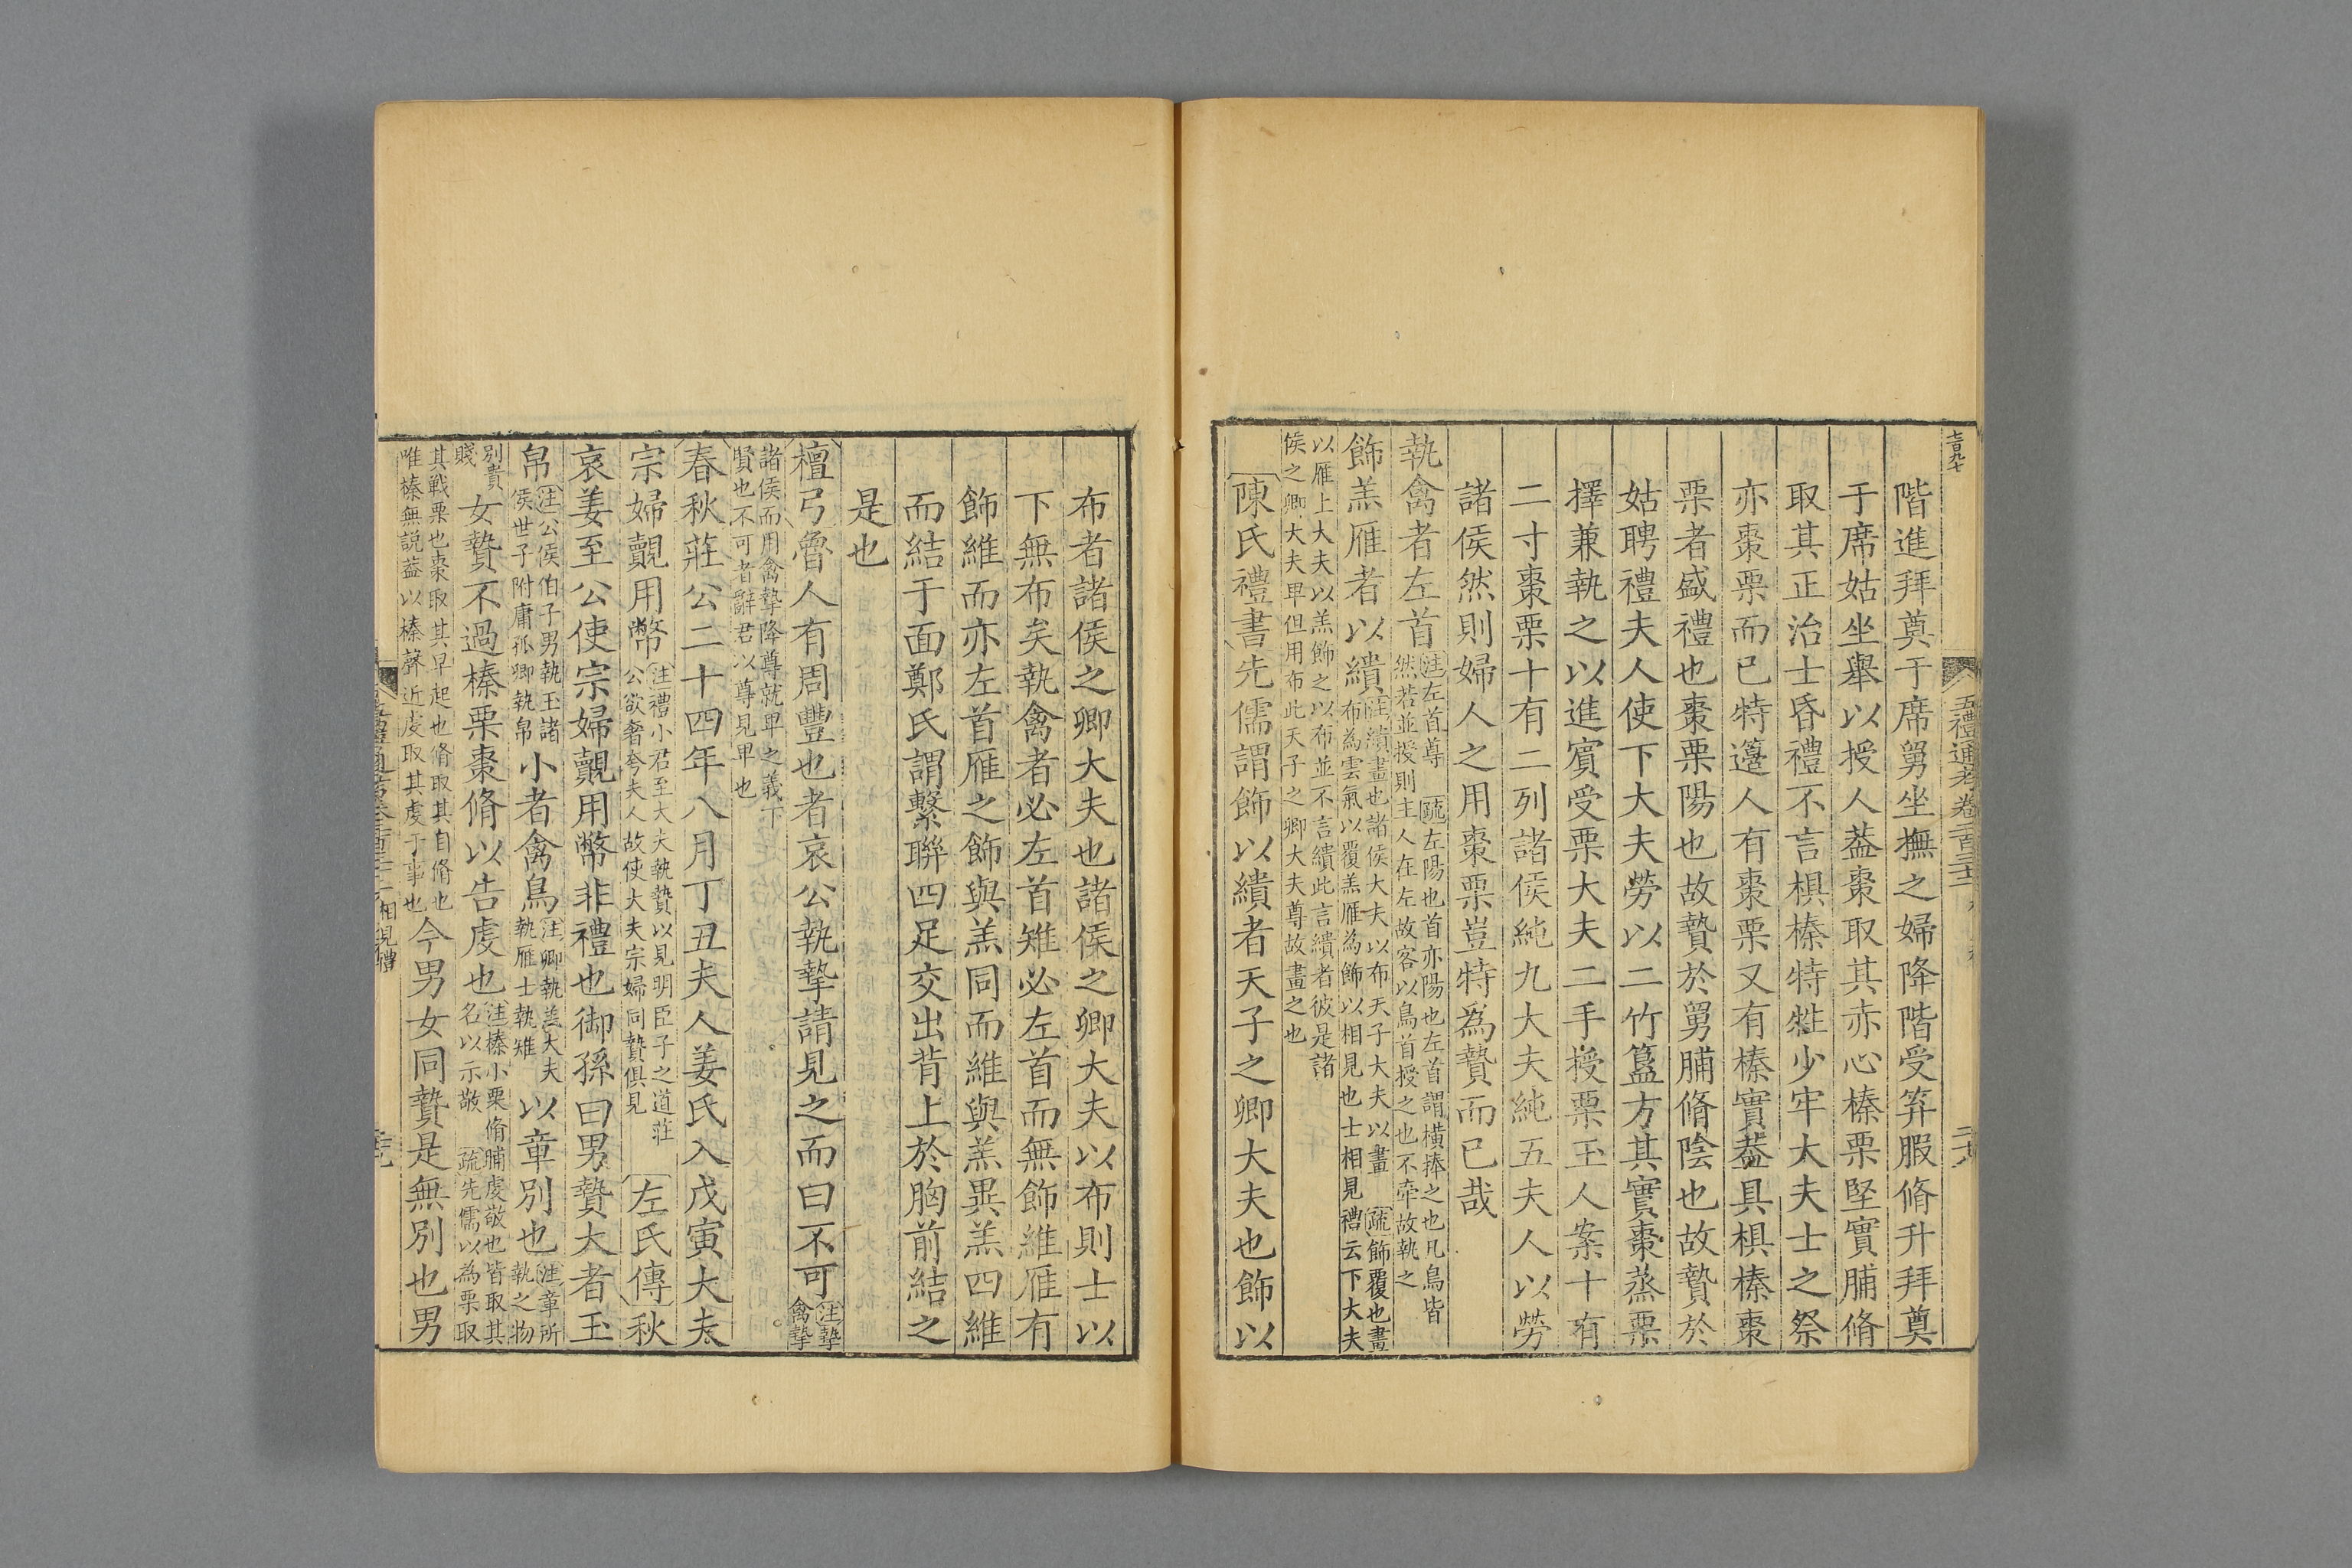 五禮通考卷二百三十
階進拜奠于席舅坐撫之婦降階受笲腶脩升拜奠
于席姑坐舉以授人葢棗取其赤心榛栗堅實脯脩
取其正治士昏禮不言椇榛特牲少牢大夫士之祭
亦棗栗而已特籩人有棗栗又有榛實葢具椇榛棗
栗者盛禮也棗栗陽也故贄於舅脯脩陰也故贄於
姑聘禮夫人使下大夫勞以二竹簋方其實棗蒸栗
擇兼執之以進賓受栗大夫二手授栗玉人案十有
二寸棗栗十有二列諸侯純九大夫純五夫人以勞
諸侯然則婦人之用棗栗豈特為贄而已哉
執禽者左首注左首尊 疏左陽也首亦陽也左首謂橫捧之也凡鳥皆然若並授則主人在左故客以鳥首授之也不牽故執之
飾羔雁者以繢注繢畫也諸侯大夫以布天子大夫以畫 疏飾覆也畫布為雲氣以覆羔雁為飾以相見也士相見禮云下大夫
以雁上大夫以羔飾之以布並不言繢此言繢者彼是諸侯之卿大夫卑但用布此天子之卿大夫尊故畫之也
陳氏禮書先儒謂飾以繢者天子之卿大夫也飾以
布者諸侯之卿大夫也諸侯之卿大夫以布則士以
下無布矣執禽者必左首雉必左首而無飾維雁有
飾維而亦左首雁之飾與羔同而維與羔異羔四維
而結于面鄭氏謂繫聯四足交出背上於胸前結之
是也
檀弓魯人有周豐也者哀公執摯請見之而曰不可注摯禽摯
諸侯而用禽摯降尊就卑之義下賢也不可者辭君以尊見卑也
春秋莊公二十四年八月丁丑夫人姜氏入戊寅大夫
宗婦覿用幣注禮小君至大夫執贄以見明臣子之道莊公欲奢夸夫人故使大夫宗婦同贄俱見左氏傳秋
哀姜至公使宗婦覿用幣非禮也御孫曰男贄大者玉
帛注公侯伯子男執玉諸侯世子附庸孤卿執帛小者禽鳥注卿執羔大夫執雁士執雉以章別也注章所執之物
別貴賤女贄不過榛栗棗脩以告虔也注榛小栗脩脯虔敬也皆取其名以示敬 疏先儒以為栗取
其戰栗也棗取其早起也脩取其自脩也唯榛無說葢以榛聲近虔取其虔于事也今男女同贄是無別也男
相見禮